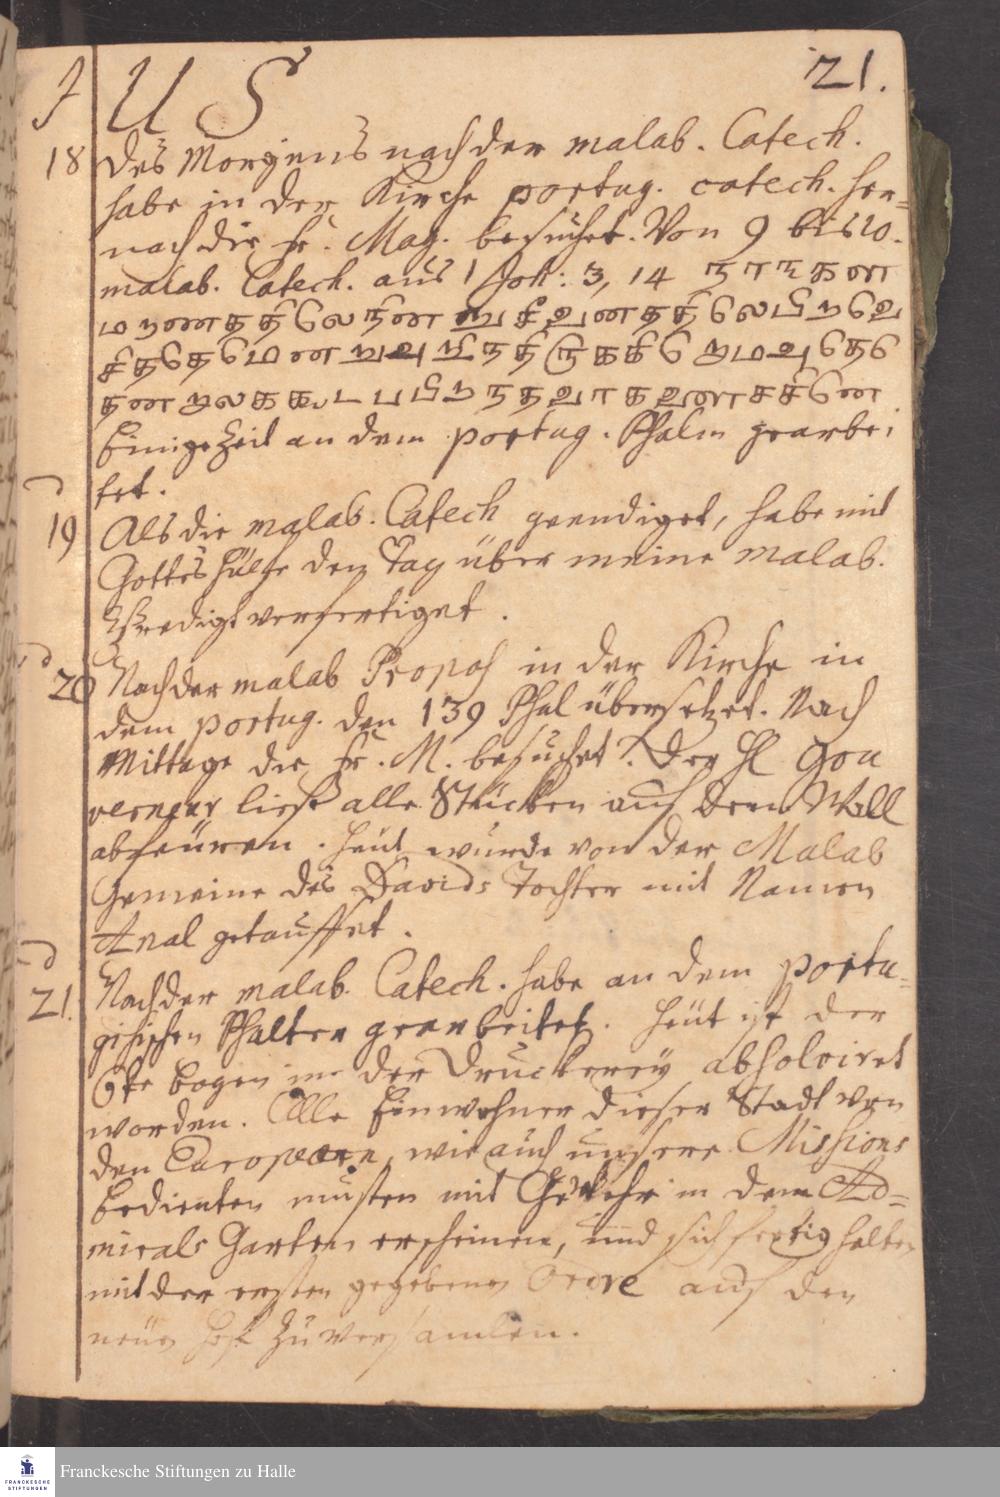 21.
J U S
18 Des Morgens nach der malab. Catech.
habe in der Kirche portug. catech. her=
nach die Fr. Mag. besuchet. Von 9 bis 10.
malab. Catech. aus 1 Joh: 3, 14 நாஙகள
மறணததிலேநினறுசீவனததிலேபிறவே
சிததேமென
Einige Zeit an dem portug. Psalm gearbei
tet.
19 Als die malab. Catech geendiget, habe mit
Gottes Hülfe den Tag über meine malab.
Predigt verfertiget.
20 Nach der malab Propos in der Kirche in
dem portug. den 139 Psal übersetzet. Nach
Mittage die Fr. M. besuchet. Der H Gou
verneur ließ alle Stücken auf dem Wall
abfeüren. Heut wurde von der Malab
Gemeine des Davids Tochter mit Namen
Anal getauffet.
21. Nach der malab. Catech. habe an dem portu=
gisischen Psalter gearbeitet. Heüt ist der
6te Bogen in der Druckerey absolviret
worden. Alle Einwohner dieser Stadt von
den Europäern, wie auch unsere Missions
bedienten musten mit Gewehr in dem Ad=
mirals Garten erscheinen, und sich fertig halten
mit der ersten gegebenen Ordre auf den
neüen zu versamlen.
FRANCKESCHE
STIFTUNGEN
Franckesche Stiftungen zu Halle